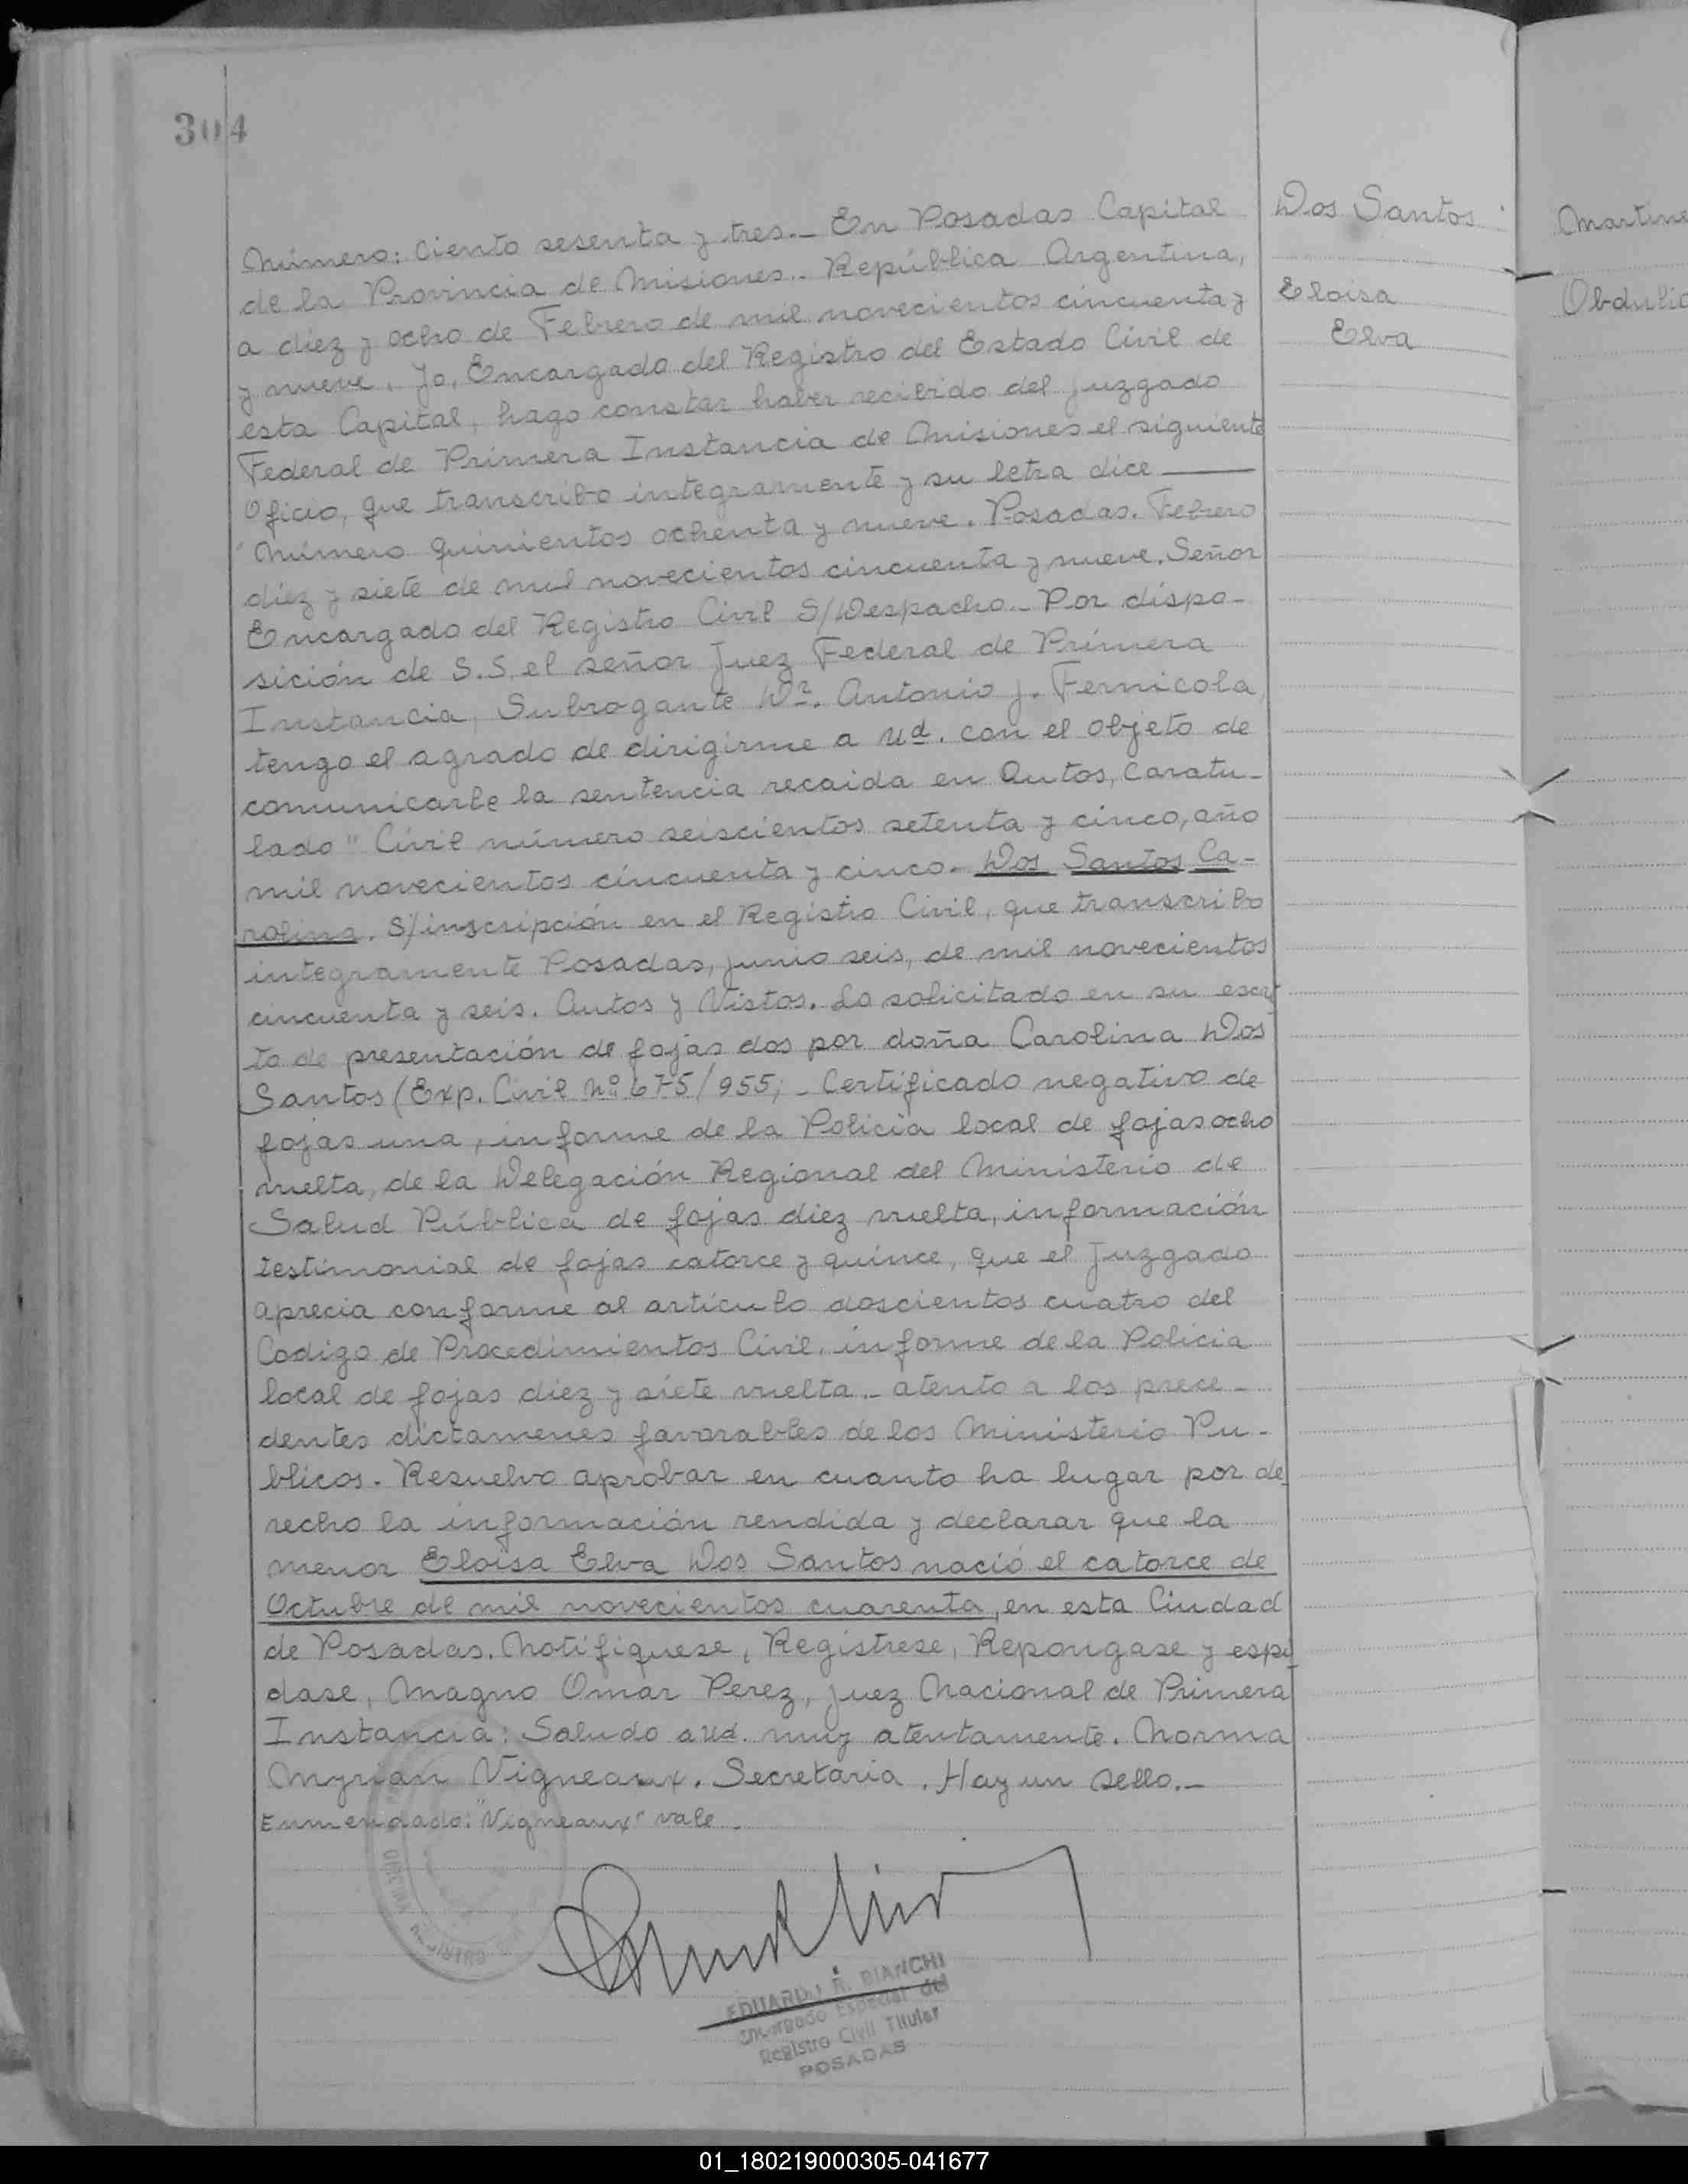 304
Número: Ciento sesenta y tres._ En Posadas Capital
de la Provincia de Misiones._ República Argentina,
a diez y ocho de Febrero de mil novecientos cincuenta y
y nueve. Yo, Encargado del Registro del Estado Civil de
esta Capital, hago constar haber recibido del juzgado
Federal de Primera Instancia de Misiones el siguiente
Oficio, que transcribo integramente y su letra dice
"Número quinientos ochenta y nueve. Posadas. Febrero
diez y siete de mil novecientos cincuenta y nueve. Señor
Encargado del Registro Civil S/Despacho._ Por dispo-
sición de S.S. el señor Juez Federal de Primera
Instancia, Subrogante Dr. Antonio J. Fernicola,
tengo el agrado de dirigirme a ud. con el objeto de
comunicarle la sentencia recaida en Autos, Caratu-
lado "Civil número seiscientos setenta y cinco, año
mil novecientos cincuenta y cinco. Dos Santos Ca-
rolina. S/inscripción en el Registro Civil, que transcribo
integramente Posadas, junio seis, de mil novecientos
cincuenta y seis. Autos y Vistos. Lo solicitado en su escri
to de presentación de fojas dos por doña Carolina Dos
Santos (Exp. Civil Nº 675/955; _ Certificado negativo de
fojas una, informe de la Policia local de fojas ocho
vuelta, de la Delegación Regional del Ministerio de
Salud Pública de fojas diez vuelta, información
testimonial de fojas catorce y quince, que el Juzgado
aprecia conforme al artículo doscientos cuatro del
Codigo de Procedimientos Civil, informe de la Policia
local de fojas diez y siete vuelta._ atento a los prece-
dentes dictamenes favorables de los Ministerio Pu-
blicos. Resuelvo aprobar en cuanto ha lugar por de
recho la información rendida y declarar que la
menor Eloisa Elva Dos Santos nació el catorce de
Octubre de mil novecientos cuarenta, en esta Ciudad
de Posadas. Notifiquese, Registrese, Repongase y espi
dase, Magno Omar Perez, Juez Nacional de Primera
Instancia: Saludo a ud. muy atentamente. Norma
Myrian Vigneaux. Secretaria. Hay un sello._
Enmendado: "Vigneaux" vale.
EDUARDO R. BIANCHI
Encargado Especial del
Registro Civil Titular
POSADAS
Dos Santos
Eloisa
Elva
Obdulio
01_180219000305-041677